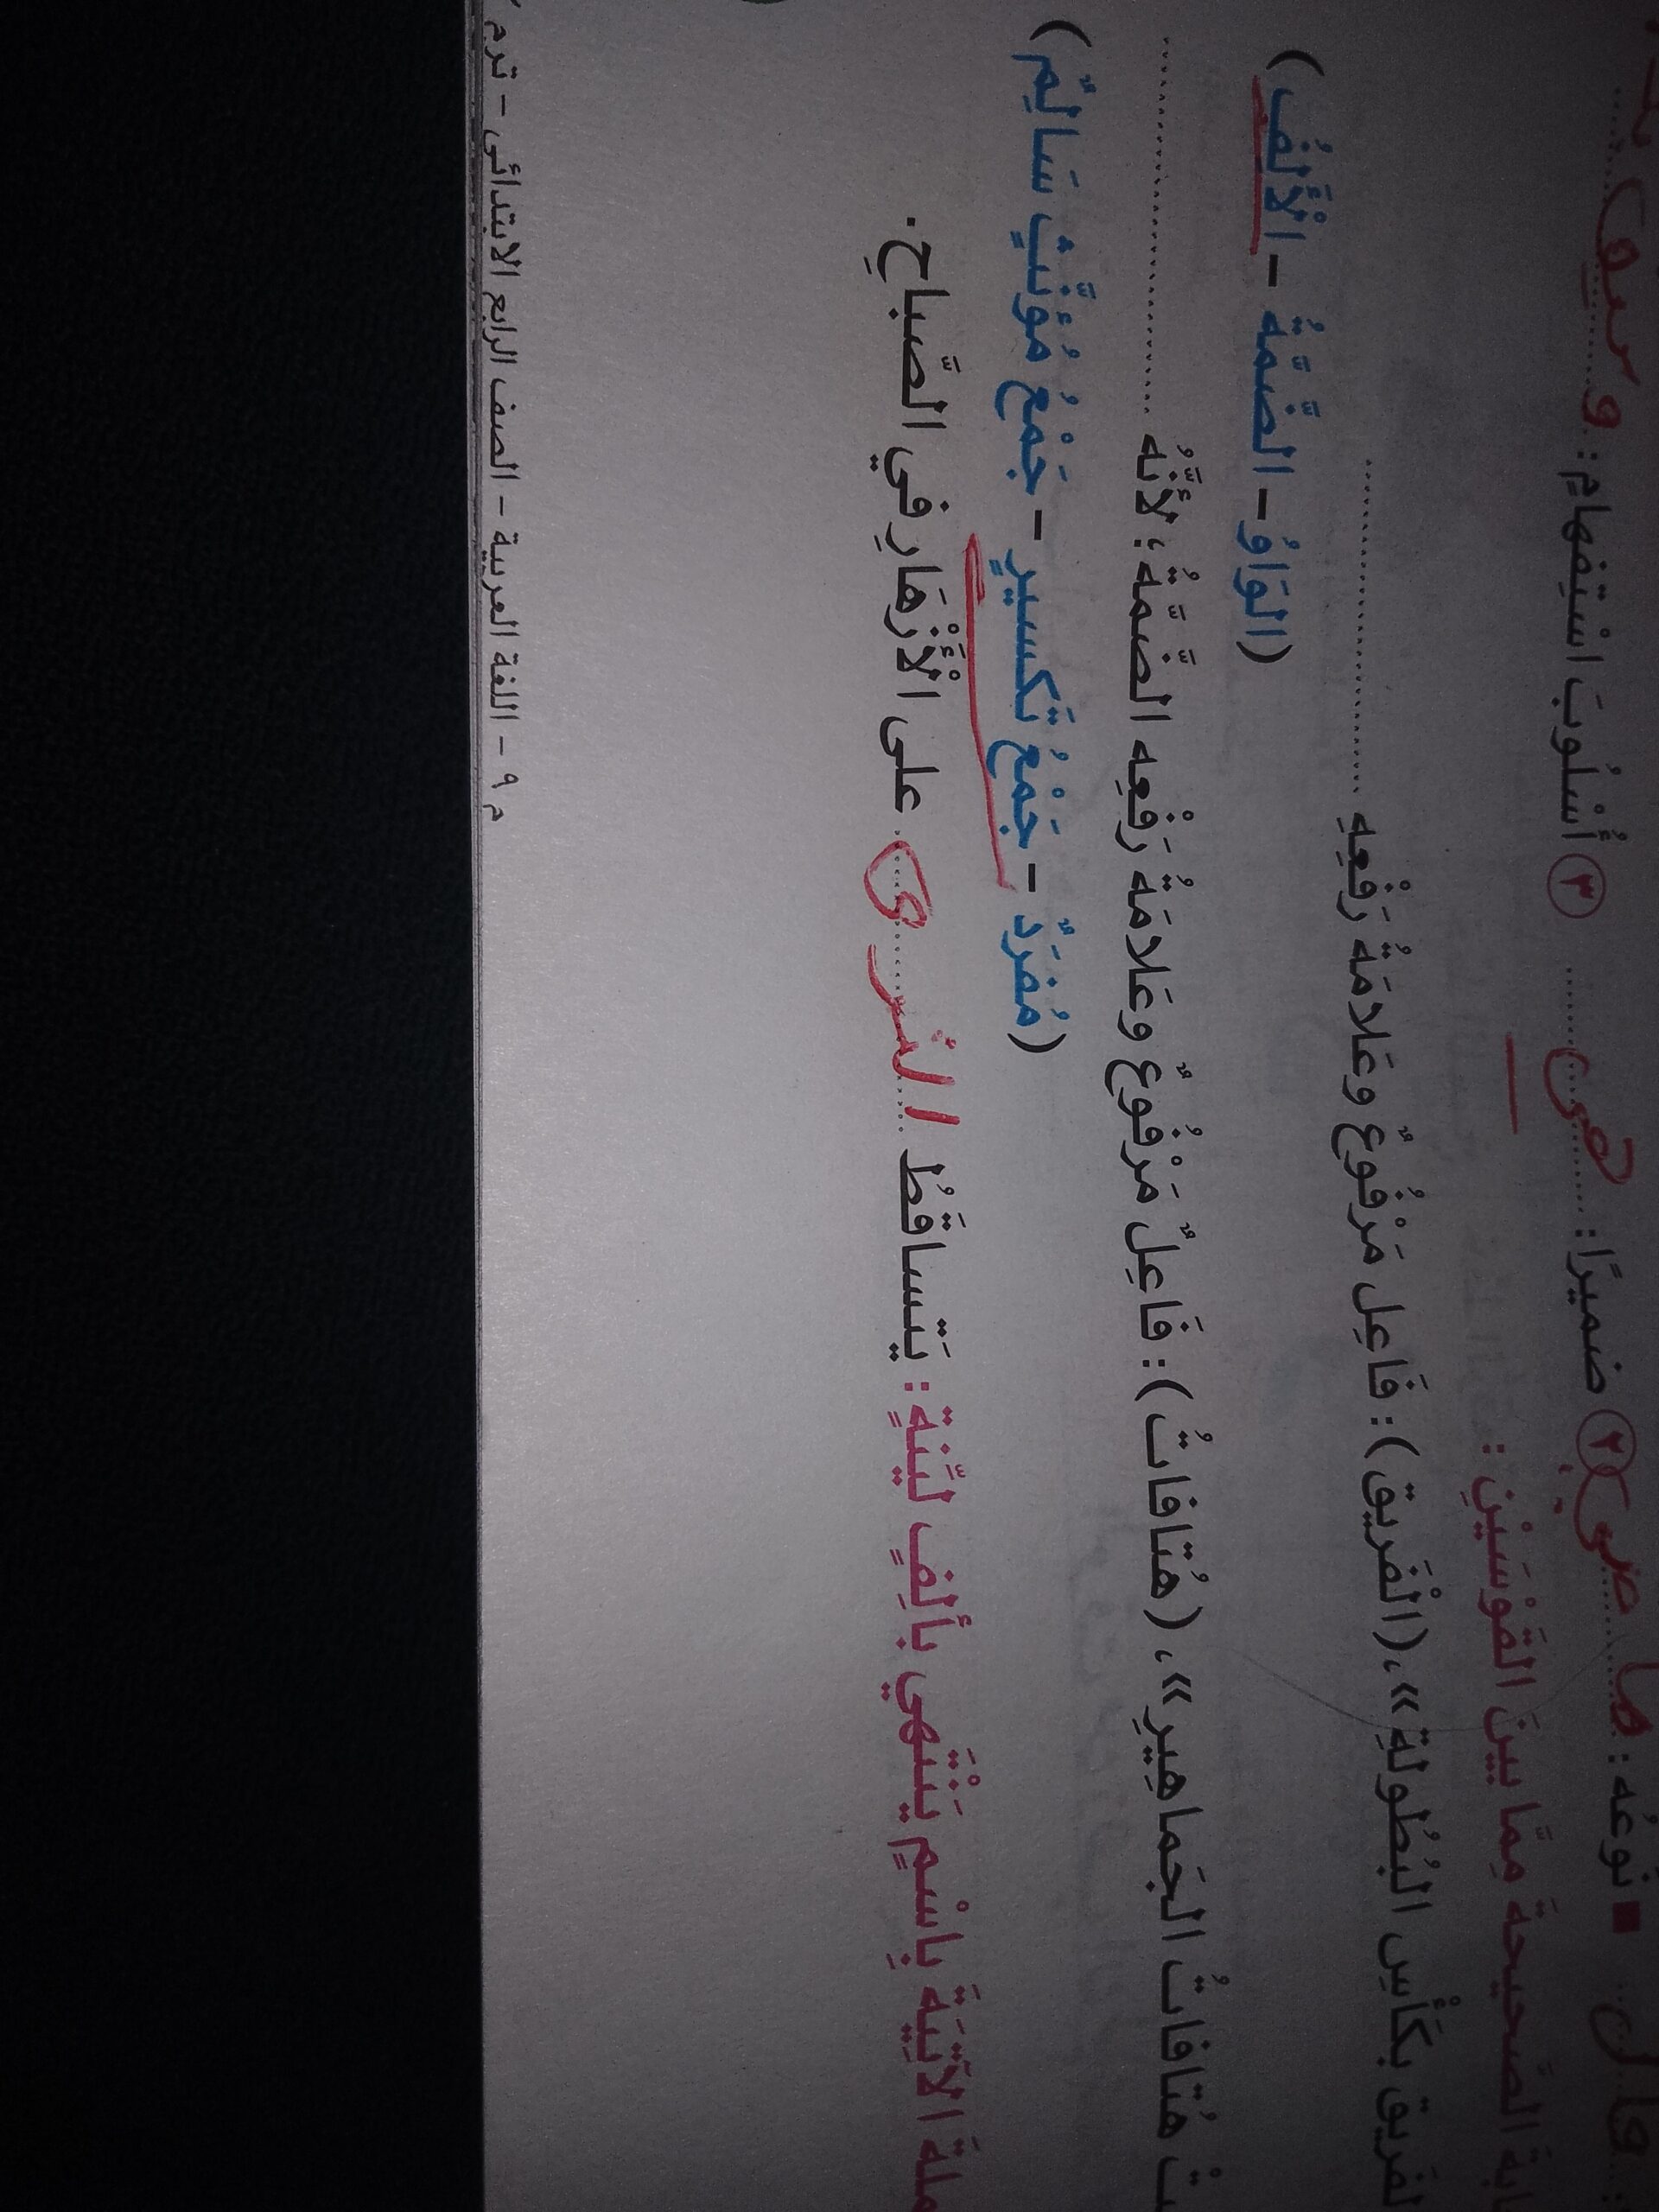 نوعُه: ماضى ② ضميرًا: هى ③ أُسْلُوبَ اسْتِفهامٍ: و
الصَّحيحةَ مِمَّا بينَ القَوْسَيْنِ:
بكَأْسِ البُطولةِ»، (الْفَريق): فَاعِل مَرْفُوعٌ وعَلامَةُ رَفْعِهِ ..........
(الوَاوُ – الضَّمَّةُ – الْأَلفُ)
هُتافاتُ الجَماهِيرِ»، (هُتافاتُ): فَاعِلٌ مَرْفُوعٌ وعَلامَةُ رَفْعِه الضَّمَّةُ؛ لأنَّهُ ..........
(مُفرَدٌ – جَمْعُ تَكسيرٍ – جَمْعُ مُؤنَّثٍ سَالِمٌ)
الآتِيَةَ بِاسْمٍ يَنْتَهي بألِفٍ ليِّنةٍ: يَتَساقَطُ الثرى على الْأَزْهَارِ في الصَّباحِ.
م ٩ – اللغة العربية – الصف الرابع الابتدائى – ترم